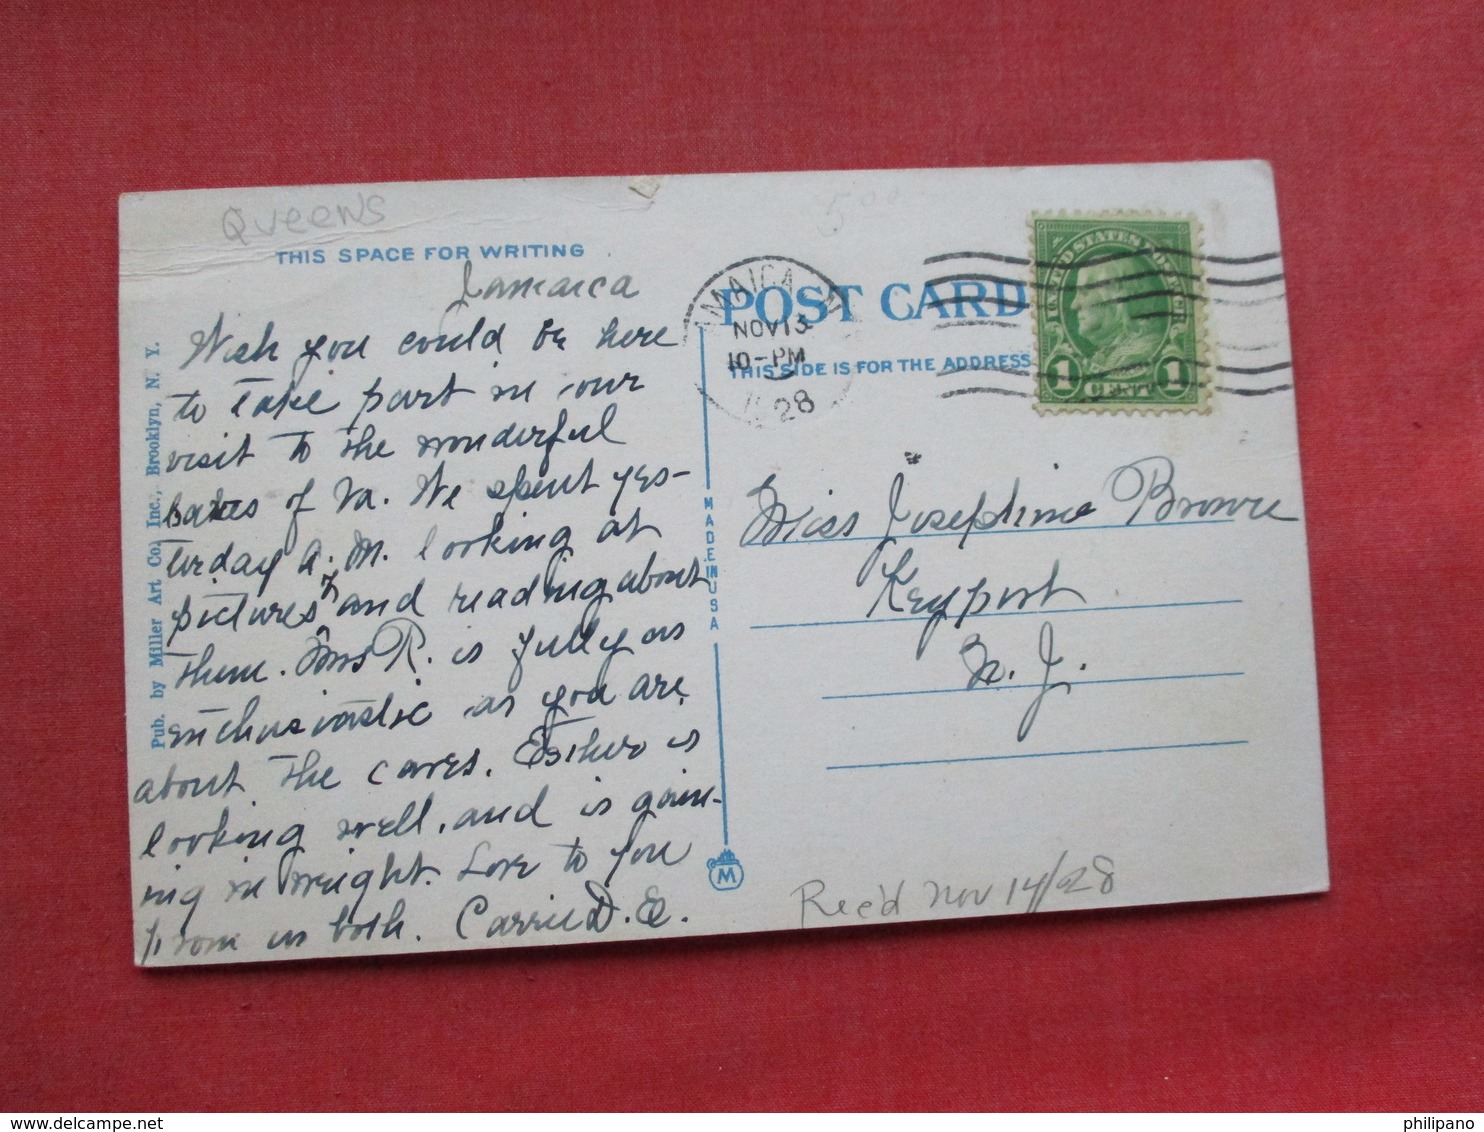 Queens
THIS SPACE FOR WRITING
Jamaica
Wish you could be here
to take part in our
visit to the wonderful
of Va. We spent yes-
terday A.M. looking at
pictures of and reading about
them. Mrs R. is fully as
enthusiastic as you are
about the caves. Esther is
looking well, and is gain-
ing in weight. Love to you
from us both. Carrie D. E.
Pub. by Miller Art Co., Inc., Brooklyn, N. Y.
MADE IN USA
M
500
JAMAICA, N
NOV 13
10-PM
28
POST CARD
THIS SIDE IS FOR THE ADDRESS
UNITED STATES POSTAGE
1 CENT 1
Miss Josephine Browne
Keyport
N. J.
Rec'd Nov 14/28
philipano